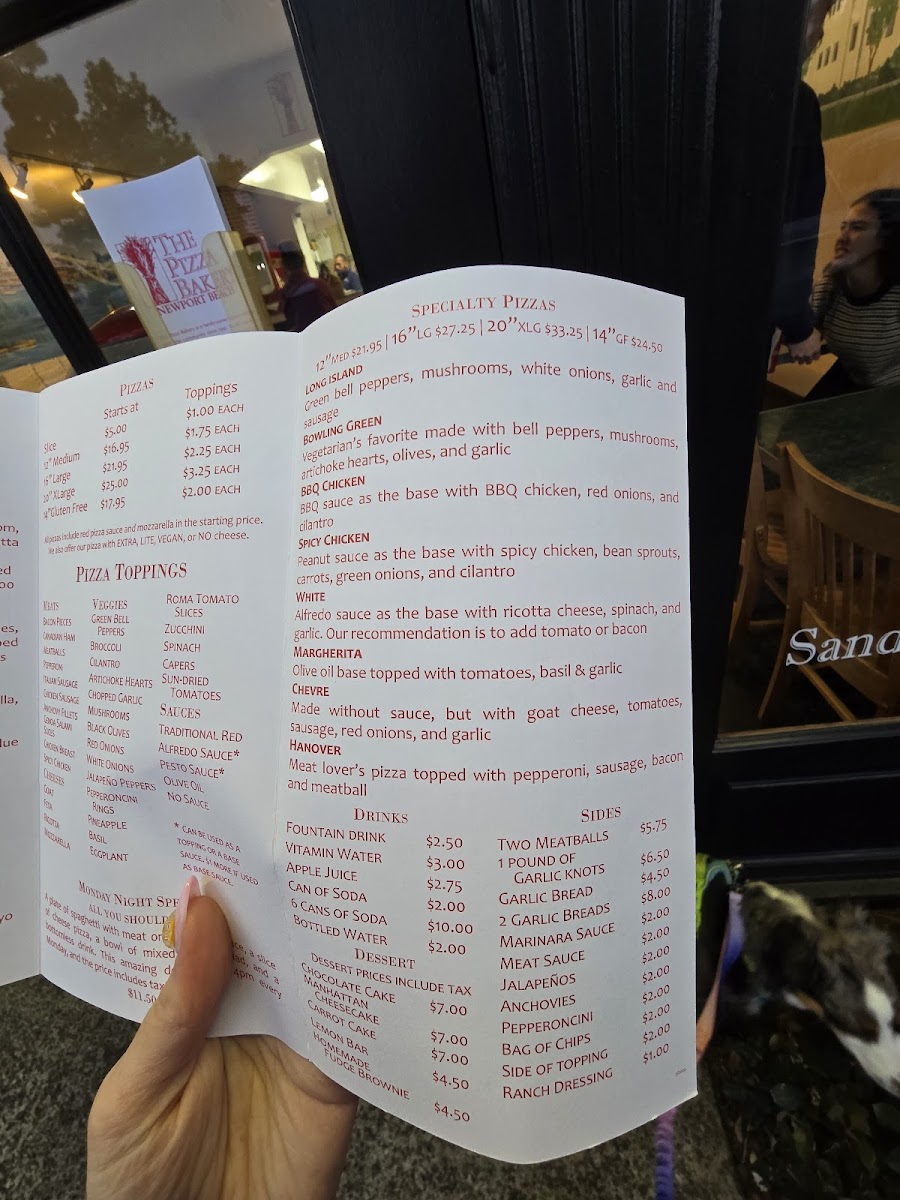 THE
PIZZA
BAK
NEWPORT BE
PIZZAS
Starts at
Toppings
Slice
$5.00
$1.00 EACH
12" Medium
$16.95
$1.75 EACH
16" Large
$21.95
$2.25 EACH
20" XLarge
$25.00
$3.25 EACH
14" Gluten Free
$17.95
$2.00 EACH
All pizzas include red pizza sauce and mozzarella in the starting price.
We also offer our pizza with EXTRA, LITE, VEGAN, or NO cheese.
PIZZA TOPPINGS
MEATS
BACON PIECES
CANADIAN HAM
MEATBALLS
PEPPERONI
ITALIAN SAUSAGE
CHICKEN SAUSAGE
ANCHOVY FILLETS
GENOA SALAMI
SLICES
CHICKEN BREAST
SPICY CHICKEN
CHEESES
GOAT
FETA
RICOTTA
MOZZARELLA
VEGGIES
GREEN BELL
PEPPERS
BROCCOLI
CILANTRO
ARTICHOKE HEARTS
CHOPPED GARLIC
MUSHROOMS
BLACK OLIVES
RED ONIONS
WHITE ONIONS
JALAPEÑO PEPPERS
PEPPERONCINI
RINGS
PINEAPPLE
BASIL
EGGPLANT
ROMA TOMATO
SLICES
ZUCCHINI
SPINACH
CAPERS
SUN-DRIED
TOMATOES
SAUCES
TRADITIONAL RED
ALFREDO SAUCE*
PESTO SAUCE*
OLIVE OIL
NO SAUCE
* CAN BE USED AS A
TOPPING OR A BASE
SAUCE. $1 MORE IF USED
AS BASE SAUCE.
MONDAY NIGHT SPE
ALL YOU SHOULD
A plate of spaghetti with meat or a slice
of cheese pizza, a bowl of mixed and a
bottomless drink. This amazing d 4pm every
Monday, and the price includes tax
$11.50
SPECIALTY PIZZAS
12" MED $21.95 | 16" LG $27.25 | 20" XLG $33.25 | 14" GF $24.50
LONG ISLAND
Green bell peppers, mushrooms, white onions, garlic and
sausage
BOWLING GREEN
Vegetarian's favorite made with bell peppers, mushrooms,
artichoke hearts, olives, and garlic
BBQ CHICKEN
BBQ sauce as the base with BBQ chicken, red onions, and
cilantro
SPICY CHICKEN
Peanut sauce as the base with spicy chicken, bean sprouts,
carrots, green onions, and cilantro
WHITE
Alfredo sauce as the base with ricotta cheese, spinach, and
garlic. Our recommendation is to add tomato or bacon
MARGHERITA
Olive oil base topped with tomatoes, basil & garlic
CHEVRE
Made without sauce, but with goat cheese, tomatoes,
sausage, red onions, and garlic
HANOVER
Meat lover's pizza topped with pepperoni, sausage, bacon
and meatball
DRINKS
FOUNTAIN DRINK $2.50
VITAMIN WATER $3.00
APPLE JUICE $2.75
CAN OF SODA $2.00
6 CANS OF SODA $10.00
BOTTLED WATER $2.00
DESSERT
DESSERT PRICES INCLUDE TAX
CHOCOLATE CAKE $7.00
MANHATTAN
CHEESECAKE $7.00
CARROT CAKE $7.00
LEMON BAR $4.50
HOMEMADE
FUDGE BROWNIE $4.50
SIDES
TWO MEATBALLS $5.75
1 POUND OF
GARLIC KNOTS $6.50
GARLIC BREAD $4.50
2 GARLIC BREADS $8.00
MARINARA SAUCE $2.00
MEAT SAUCE $2.00
JALAPEÑOS $2.00
ANCHOVIES $2.00
PEPPERONCINI $2.00
BAG OF CHIPS $2.00
SIDE OF TOPPING $2.00
RANCH DRESSING $1.00
Sand